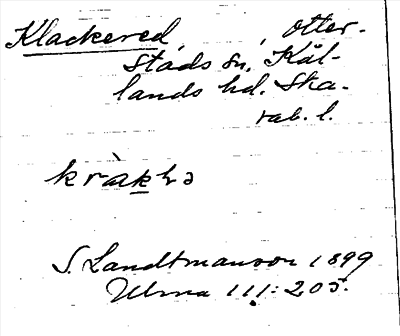 Klackered, Otter-
stads sn, Kål-
lands hd. Ska-
rab. l.
kràkhə
S. Landtmanson 1899
Ulma 111:205.